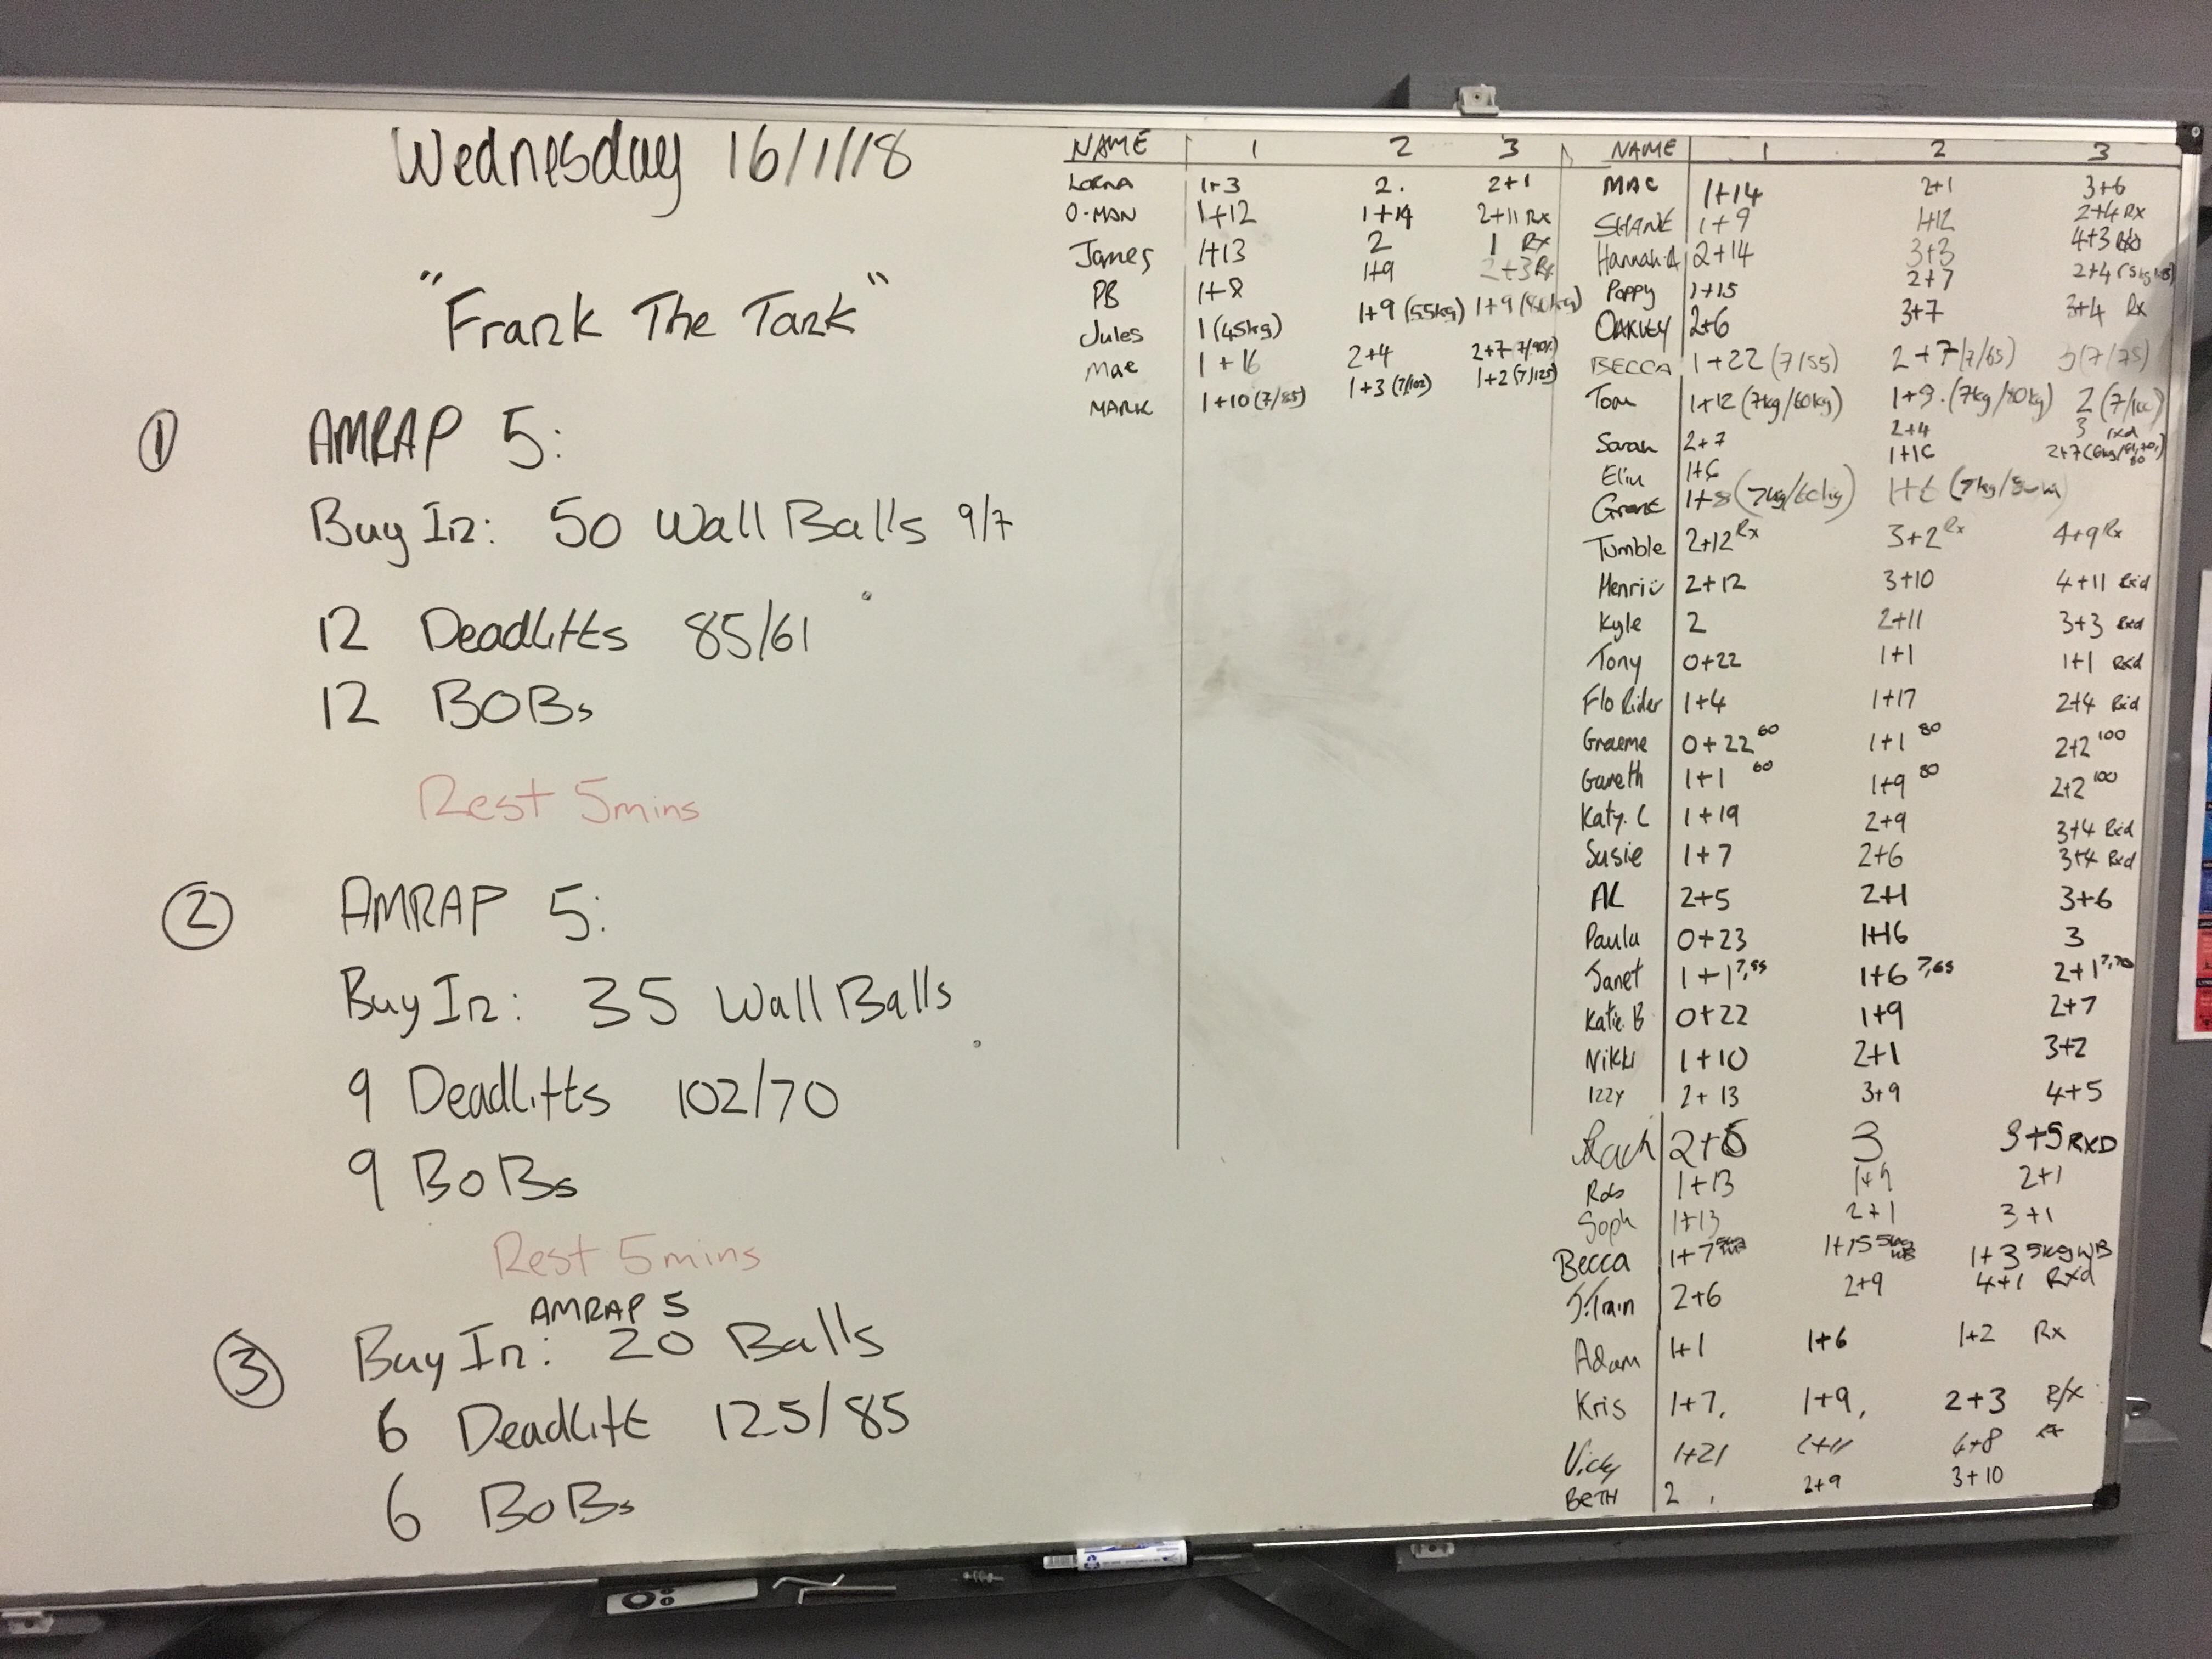 Wednesday 16/1/18
"Frank The Tank"
① AMRAP 5:
Buy In: 50 Wall Balls 9/7
12 Deadlifts 85/61
12 BOBs
Rest 5mins
② AMRAP 5:
Buy In: 35 Wall Balls
9 Deadlifts 102/70
9 BOBs
Rest 5mins
AMRAP 5
③ Buy In: 20 Balls
6 Deadlift 125/85
6 BOBs
NAME 1 2 3
LORNA 1+3 2. 2+1
O-MAN 1+12 1+14 2+11 Rx
James 1+13 2 1 Rx
PB 1+8 1+9 2+3 Rx
Jules 1 (45kg) 1+9 (55kg) 1+9
Mae 1+16 2+4 2+7
MARK 1+10 (7/85) 1+3 (7/102) 1+2 (7/125)
NAME 1 2 3
MAC 1+14 2+1 3+6
SHANE 1+9 1+12 2+4 Rx
Hannah A 2+14 3+3 4+3
Poppy 1+15 2+7 2+4
OAKLEY 2+6 3+7 3+4 Rx
BECCA 1+22 (7/55) 2+7 (7/65) 3 (7/75)
Tom 1+12 (7kg/60kg) 1+9. (7kg/80kg) 2
Sarah 2+7 2+4 3 rxd
1+6 1+16 2+7
1+8 (7kg/60kg) 1+6
Tumble 2+12 Rx 3+2 Rx 4+9 Rx
Henri 2+12 3+10 4+11 Rxd
Kyle 2 2+11 3+3 Rxd
Tony 0+22 1+1 1+1 Rxd
Flo Rider 1+4 1+17 2+4 Rxd
Graeme 0+22 60 1+1 80 2+2 100
Gareth 1+1 60 1+9 80 2+2 100
Katy. C 1+19 2+9 3+4 Rxd
Susie 1+7 2+6 3+4 Rxd
AL 2+5 2+1 3+6
Paula 0+23 1+16 3
Janet 1+1 7,55 1+6 7,65 2+1 7,70
Katie B 0+22 1+9 2+7
Nikki 1+10 2+1 3+2
IZZY 2+13 3+9 4+5
Rach 2+6 3 3+5 RXD
Rob 1+13 1+9 2+1
Soph 1+13 2+1 3+1
Becca 1+7 1+15 5kg WB 1+3 5kg WB
J-Train 2+6 2+9 4+1 Rxd
Adam 1+1 1+6 1+2 Rx
Kris 1+7, 1+9, 2+3 R/X
Vicky 1+21 2+11
BETH 2, 2+9 3+10